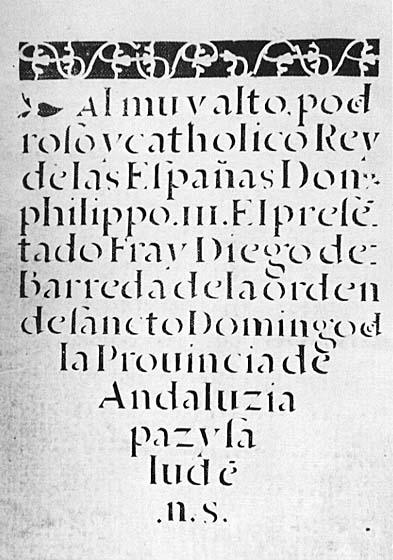 Al muy alto, pod
roſo y catholico Rey
de las Eſpañas Don
philippo .III. El preſẽ
tado Fray Diego de:
Barreda de la orden
de ſancto Domingo d
la Prouincia de
Andaluzia
paz y ſa
lud ẽ
.n. s.